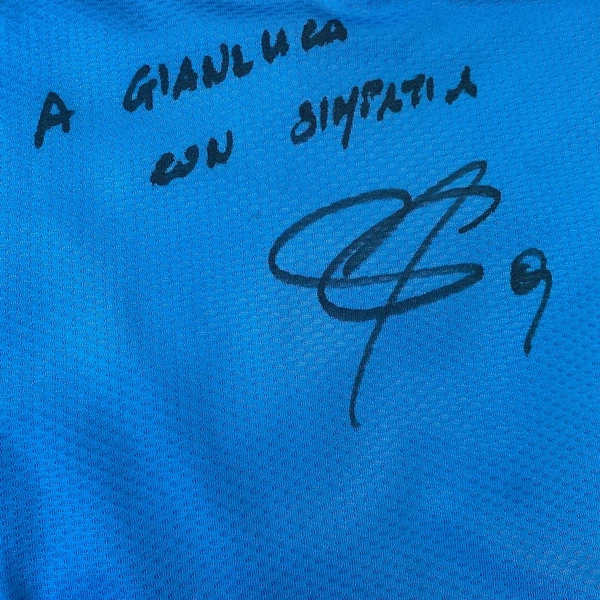 A GIANLUCA
CON SIMPATIA
9